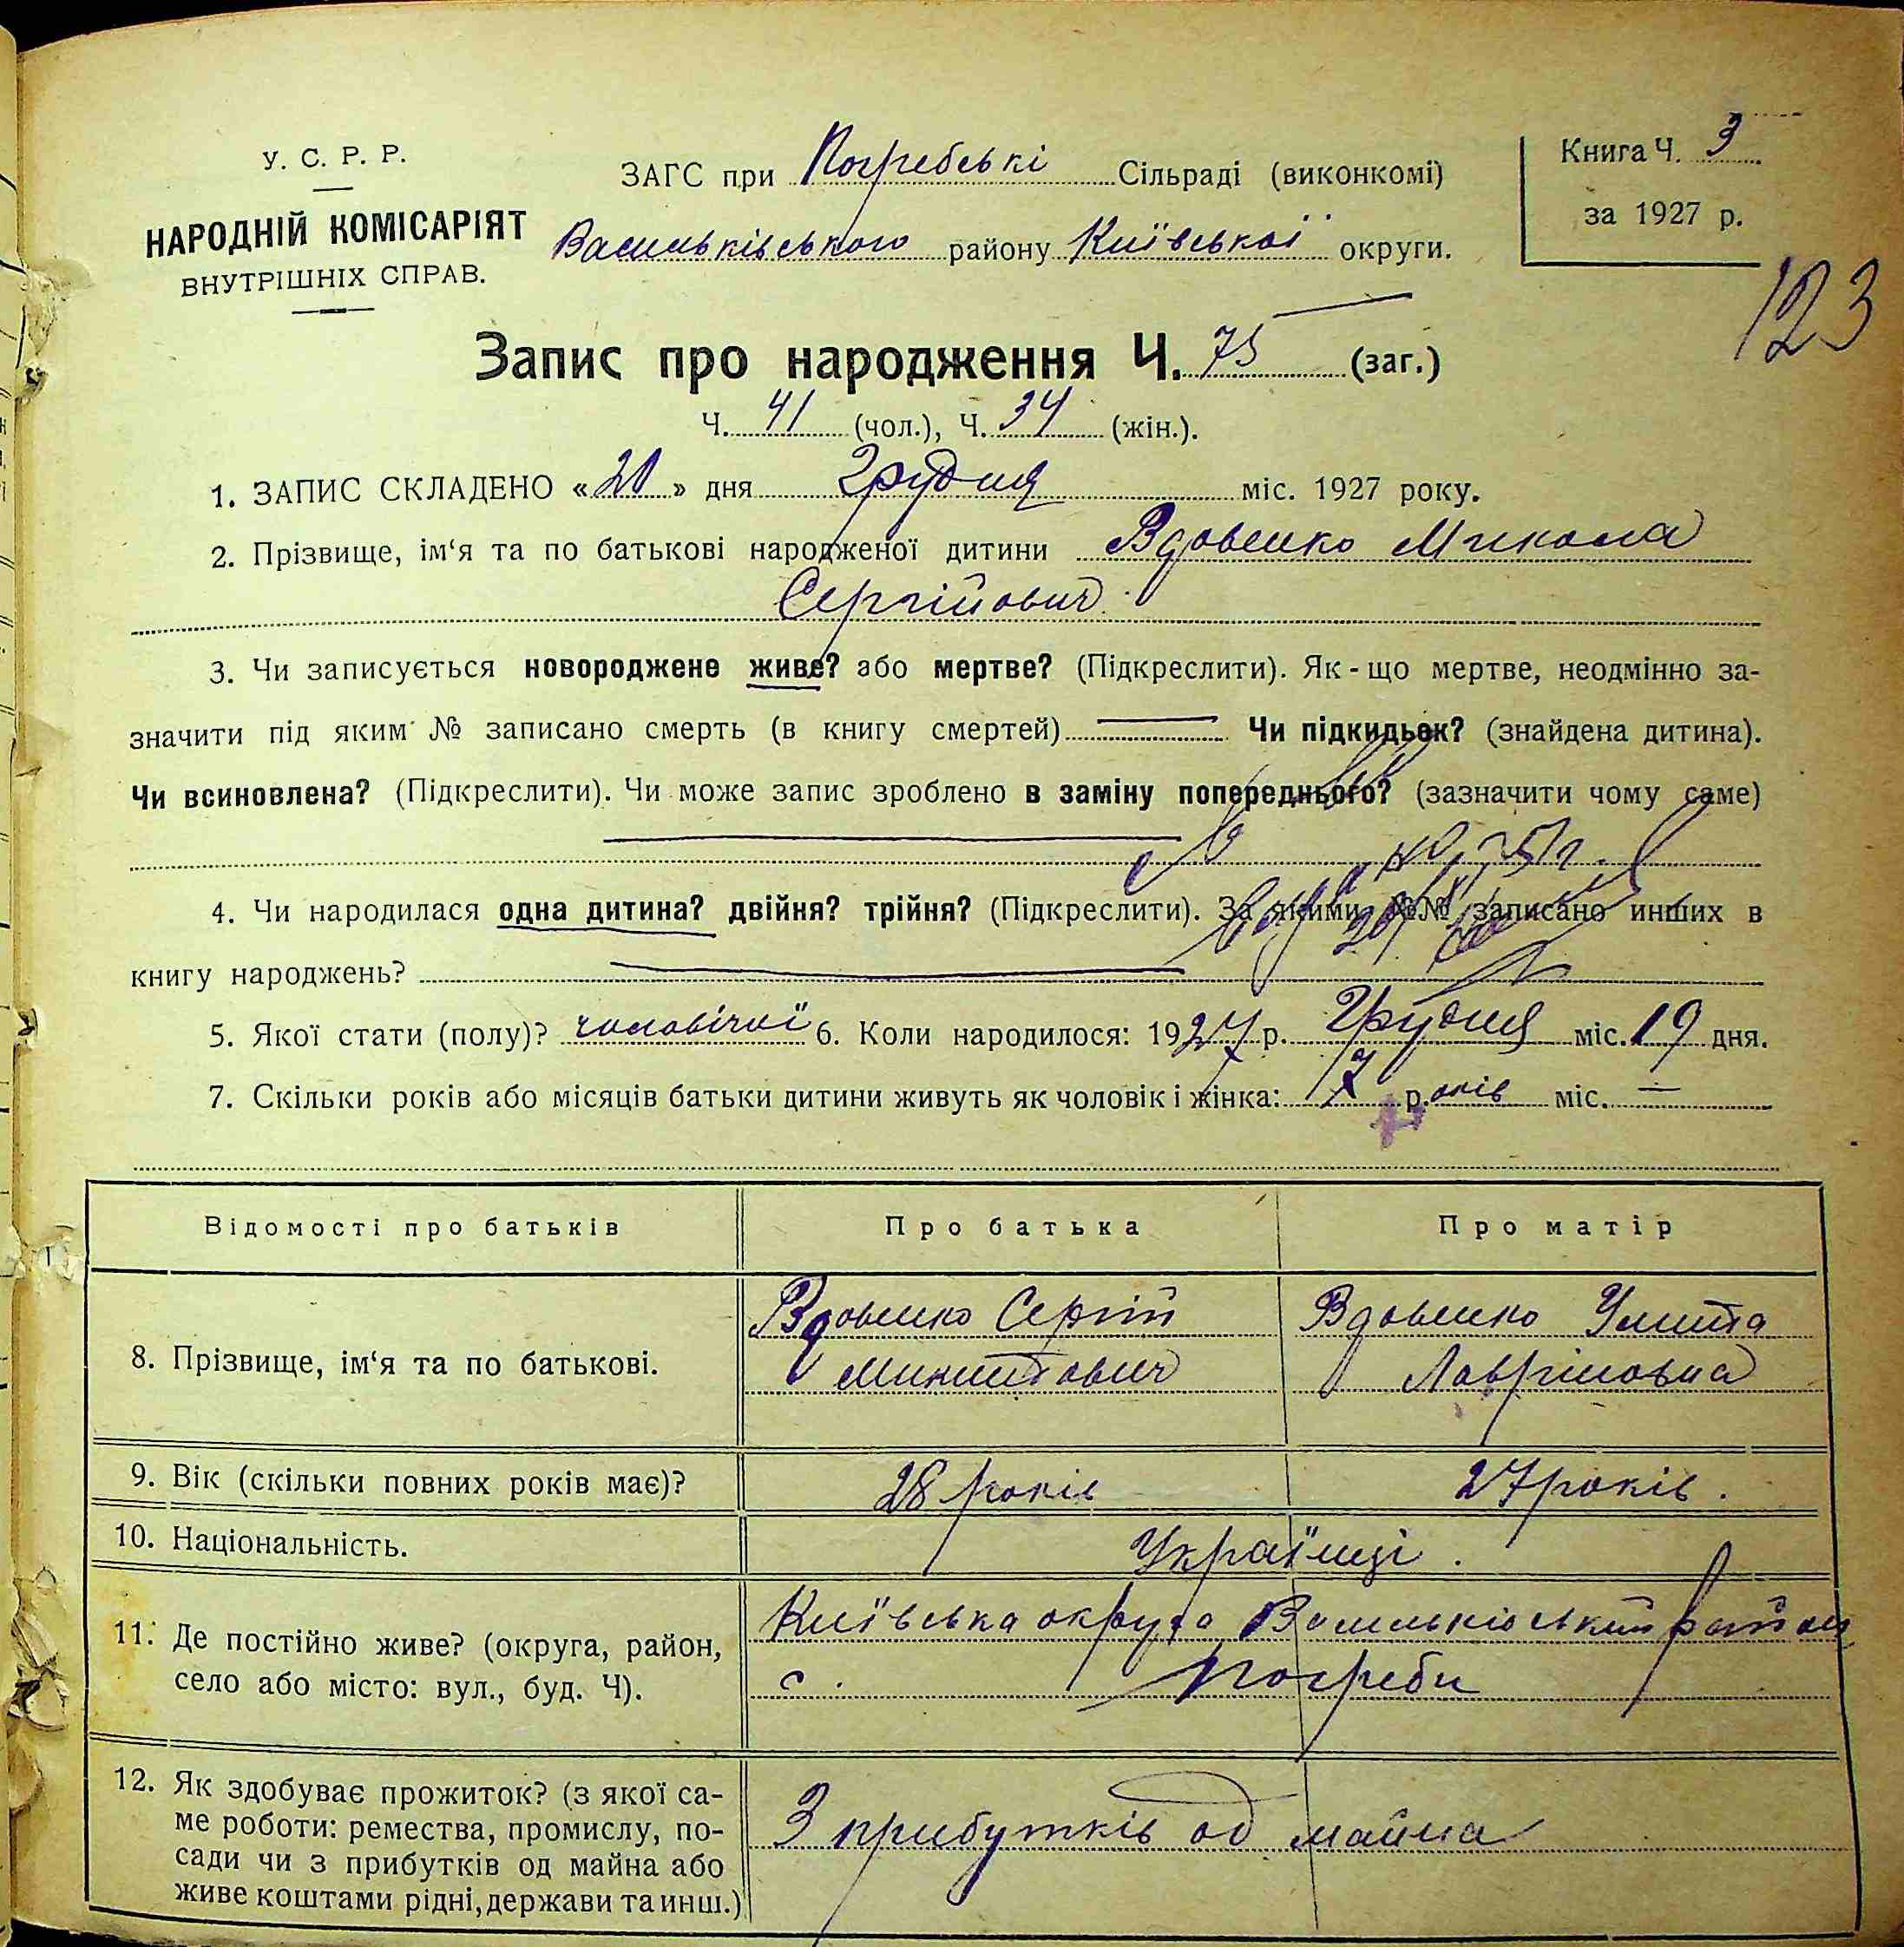 У. С. Р. Р.
НАРОДНІЙ КОМІСАРІЯТ
ВНУТРІШНІХ СПРАВ.
ЗАГС при Погребські Сільраді (виконкомі)
Васильківського району Київської округи.
Книга Ч. 3
за 1927 р.
123
Запис про народження Ч. 75 (заг.)
Ч. 41 (чол.), Ч. 34 (жін.).
1. ЗАПИС СКЛАДЕНО «20» дня Грудня міс. 1927 року.
2. Прізвище, ім‘я та по батькові народженої дитини Вдовенко Микола
Сергійович
3. Чи записується новороджене живе? або мертве? (Підкреслити). Як - що мертве, неодмінно за-
значити під яким № записано смерть (в книгу смертей) Чи підкидьок? (знайдена дитина).
Чи всиновлена? (Підкреслити). Чи може запис зроблено в заміну попереднього? (зазначити чому саме)
4. Чи народилася одна дитина? двійня? трійня? (Підкреслити). За якими №№ записано инших в
книгу народжень?
5. Якої стати (полу)? чоловічої 6. Коли народилося: 1927 р. Грудня міс. 19 дня.
7. Скільки років або місяців батьки дитини живуть як чоловік і жінка: 7 р.оків міс. —
Відомості про батьків
Про батька
Про матір
8. Прізвище, ім‘я та по батькові.
Вдовенко Сергій
Микитович
Вдовенко Улита
Лавріновна
9. Вік (скільки повних років має)?
28 років
27 років.
10. Національність.
Українці.
11. Де постійно живе? (округа, район,
село або місто: вул., буд. Ч).
Київська округа Васильківський район
с. Погреби
12. Як здобуває прожиток? (з якої са-
ме роботи: ремества, промислу, по-
сади чи з прибутків од майна або
живе коштами рідні, держави та инш.)
З прибутків од майна